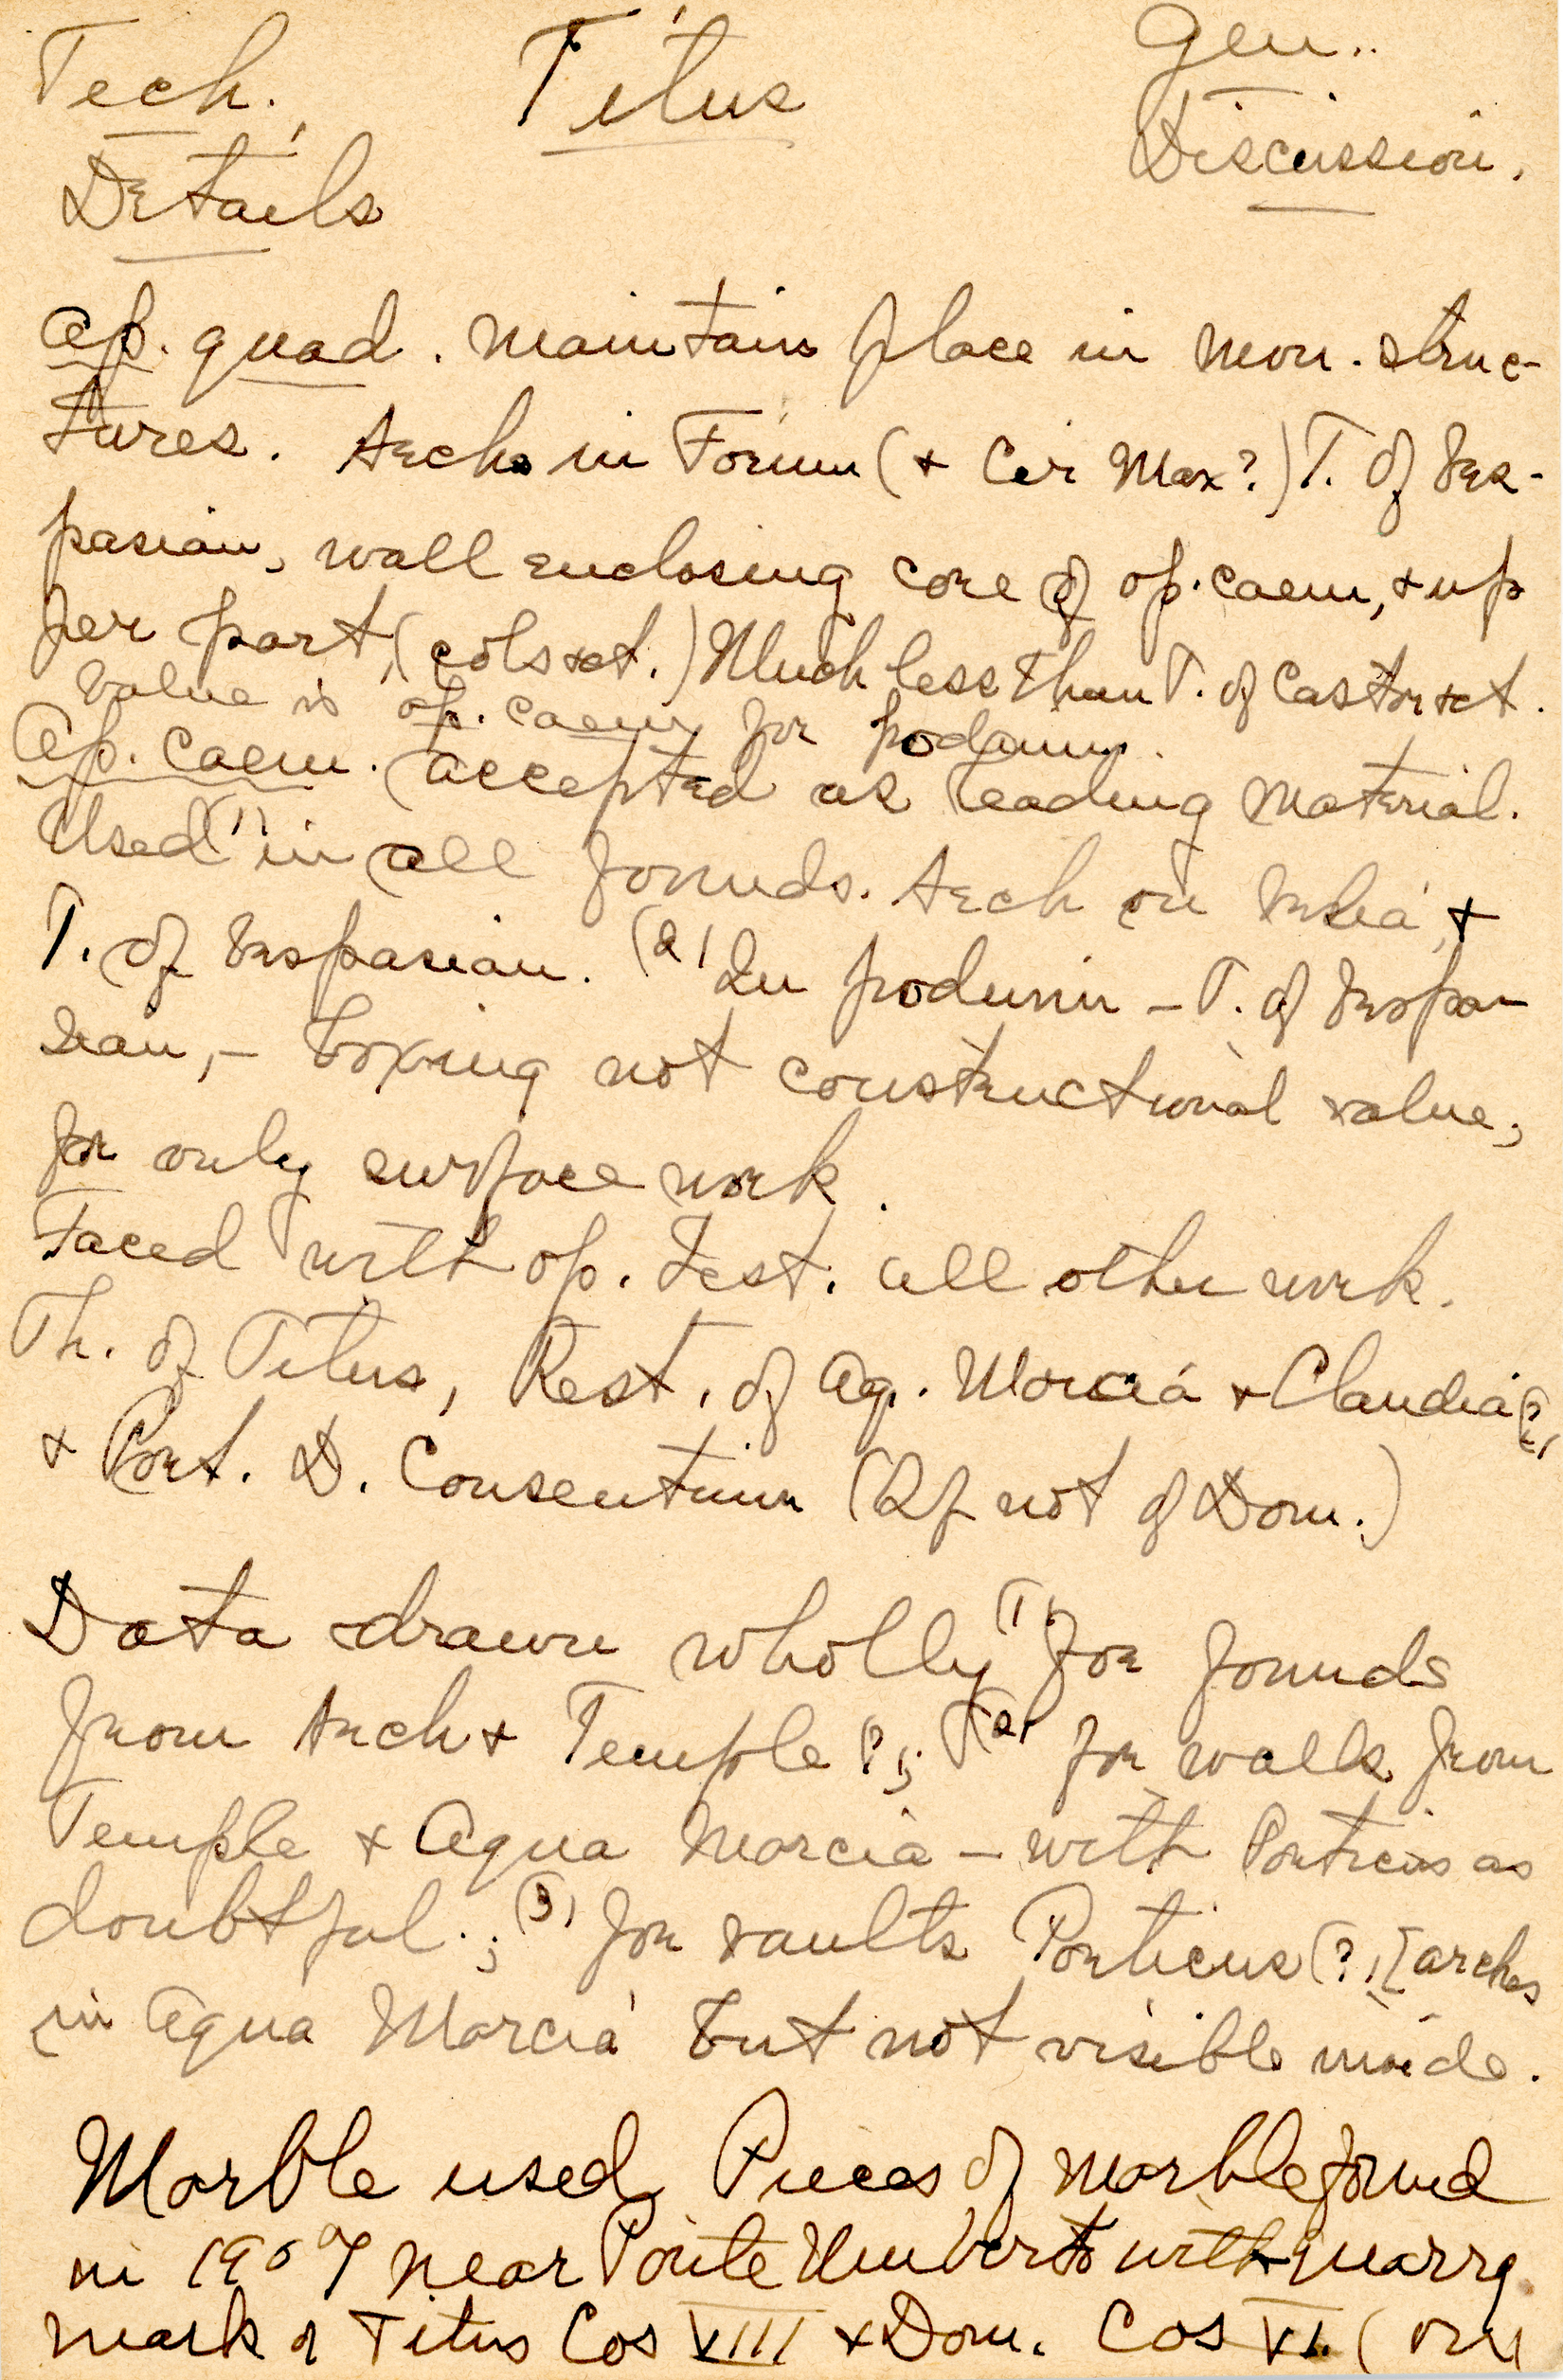 Tech. Titus Gen.
Details Discussion.
Op. quad. maintains place in mon. struc-
tures. Arch in Forum (+ Cir Max?) T. of Ves-
pasian, wall enclosing core of op. caem, + up
per part, (cols + ct.) Much less than T. of Castor + ct.
Value is op. caem for podium.
Op. caem. accepted as leading material.
Used (1) in all founds. Arch on Velia, +
T. of Vespasian. (2) In podium - T. of Vespa-
sian, - boxing not constructional value,
for only surface work.
Faced with op. test. all other work.
Th. of Titus, Rest. of Aq. Marcia + Claudia(?)
+ Port. D. Consentium (If not of Dom.)
Data drawn wholly (1) for founds
from Arch + Temple ?; (2) for walls from
Temple + Aqua Marcia - with Porticus as
doubtful.; (3) for vaults Porticus (?) [arches
in Aqua Marcia but not visible inside.
Marble used, Pieces of marble found
in 1907 near Ponte Umberto with quarry
mark of Titus Cos VIII + Dom. Cos VI. (